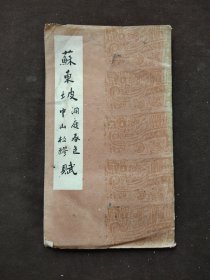 蘇東坡洞庭春色
中山松醪賦